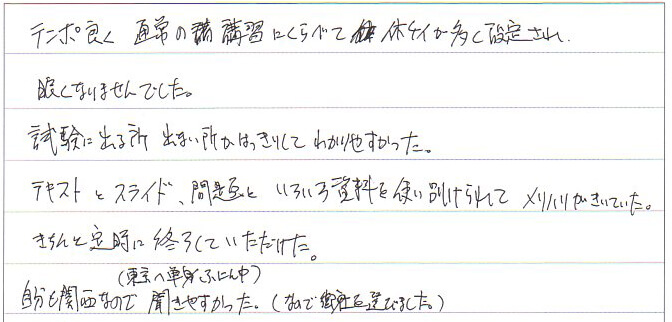 テンポ良く 通常の講習にくらべて 休ケイが多く設定され、
眠くなりませんでした。
試験に出る所 出ない所がはっきりしてわかりやすかった。
テキストとスライド、問題と いろいろ資料を使い分けられて メリハリがきいていた。
きちんと定時に終了していただけた。
(東京へ単身ふにん中)
自分も関西なので 聞きやすかった。(なので御社を選びました。)